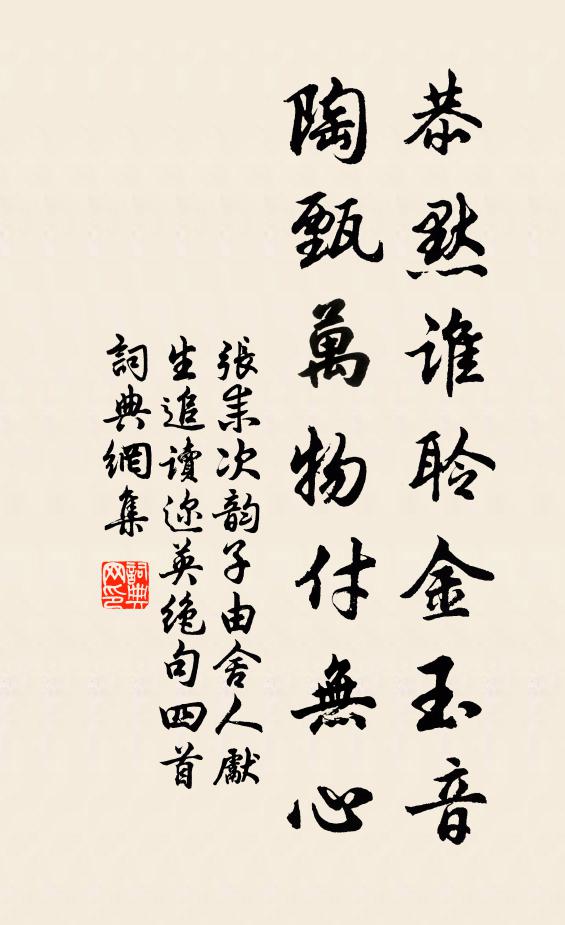 恭默谁聆金玉音
陶甄萬物付無心
張耒次韵子由舍人獻
生追讀迩英絶句四首
詞典網集
詞典网印